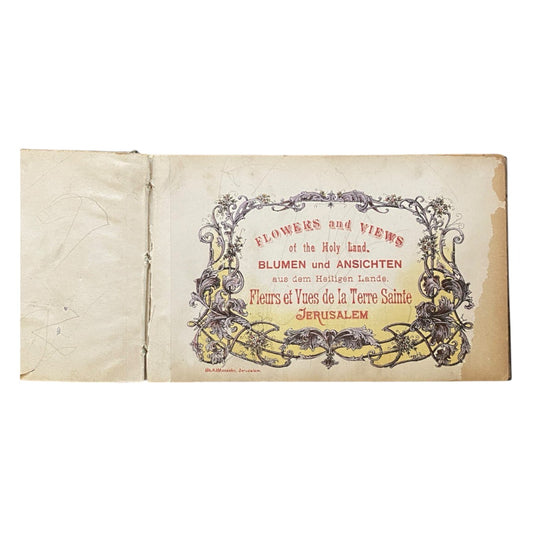 FLOWERS and VIEWS
of the Holy Land.
BLUMEN und ANSICHTEN
aus dem Heiligen Lande.
Fleurs et Vues de la Terre Sainte
JERUSALEM
Jerusalem.